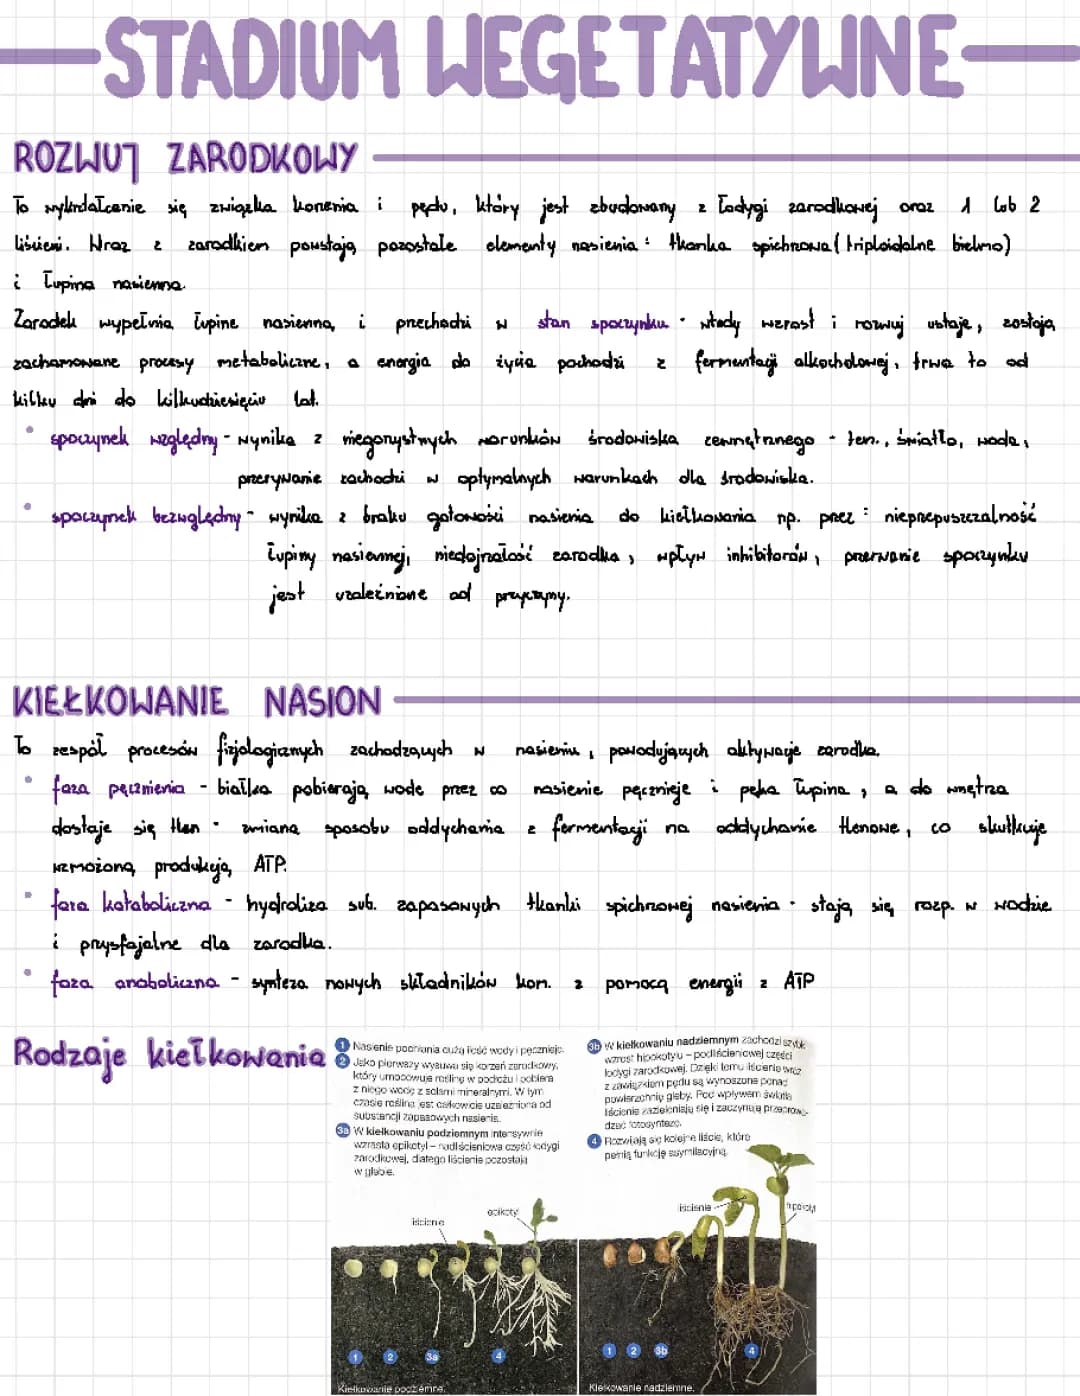 STADIUM WEGETATYWNE
ROZWÓJ ZARODKOWY
To wykształcenie się związka korzenia i pędu, który jest zbudowany z łodygi zarodkowej oraz 1 lub 2
liścieni. Wraz z zarodkiem powstają pozostałe elementy nasienia: tkanka spichrzowa (triploidalne bielmo)
i łupina nasienna.
Zarodek wypełnia łupine nasienną i przechodzi w stan spoczynku · wtedy wzrost i rozwój ustaje, zostają
zachamowane procesy metaboliczne, a energia do życia pochodzi z fermentacji alkocholowej, trwa to od
kilku dni do kilkudziesięciu lat.
• spoczynek względny - wynika z niegorystnych warunków środowiska zewnętrznego - tem., światło, woda,
przerywanie zachodzi w optymalnych warunkach dla środowiska.
• spoczynek bezwględny - wynika z braku gotowości nasienia do kiełkowania np. przez: nieprzepuszczalność
łupiny nasiennej, niedojrzałość zarodka, wpływ inhibitorów, przerwanie spoczynku
jest uzależnione od przyczyny.
KIEŁKOWANIE NASION
To zespół procesów fizjologicznych zachodzących w nasieniu, powodujących aktywacje zarodka.
• faza pęcznienia - białka pobierają wode przez co nasienie pęcznieje i pęka łupina, a do wnętrza
dostaje się tlen · zmiana sposobu oddychania z fermentacji na oddychanie tlenowe, co skutkuje
wzmożoną produkcją ATP.
• faza kataboliczna - hydroliza sub. zapasowych tkanki spichrzowej nasienia · stają się rozp. w wodzie
i przysfajalne dla zarodka.
• faza anaboliczna - synteza nowych składników kom. z pomocą energii z ATP
Rodzaje kiełkowania
1 Nasienie pochłania dużą ilość wody i pęcznieje.
2 Jako pierwszy wysuwa się korzeń zarodkowy,
który umocowuje roślinę w podłożu i pobiera
z niego wodę z solami mineralnymi. W tym
czasie roślina jest całkowicie uzależniona od
substancji zapasowych nasienia.
3a W kiełkowaniu podziemnym intensywnie
wzrasta epikotyl – nadliścieniowa część łodygi
zarodkowej, dlatego liścienie pozostają
w glebie.
3b W kiełkowaniu nadziemnym zachodzi szybki
wzrost hipokotylu – podliścieniowej części
łodygi zarodkowej. Dzięki temu liścienie wraz
z zawiązkiem pędu są wynoszone ponad
powierzchnię gleby. Pod wpływem światła
liścienie zazieleniają się i zaczynają przeprowa-
dzać fotosyntezę.
4 Rozwijają się kolejne liście, które
pełnią funkcję asymilacyjną.
liścienie
epikotyl
liścienie
hipokotyl
1 2 3a 4
1 2 3b 4
Kiełkowanie podziemne.
Kiełkowanie nadziemne.